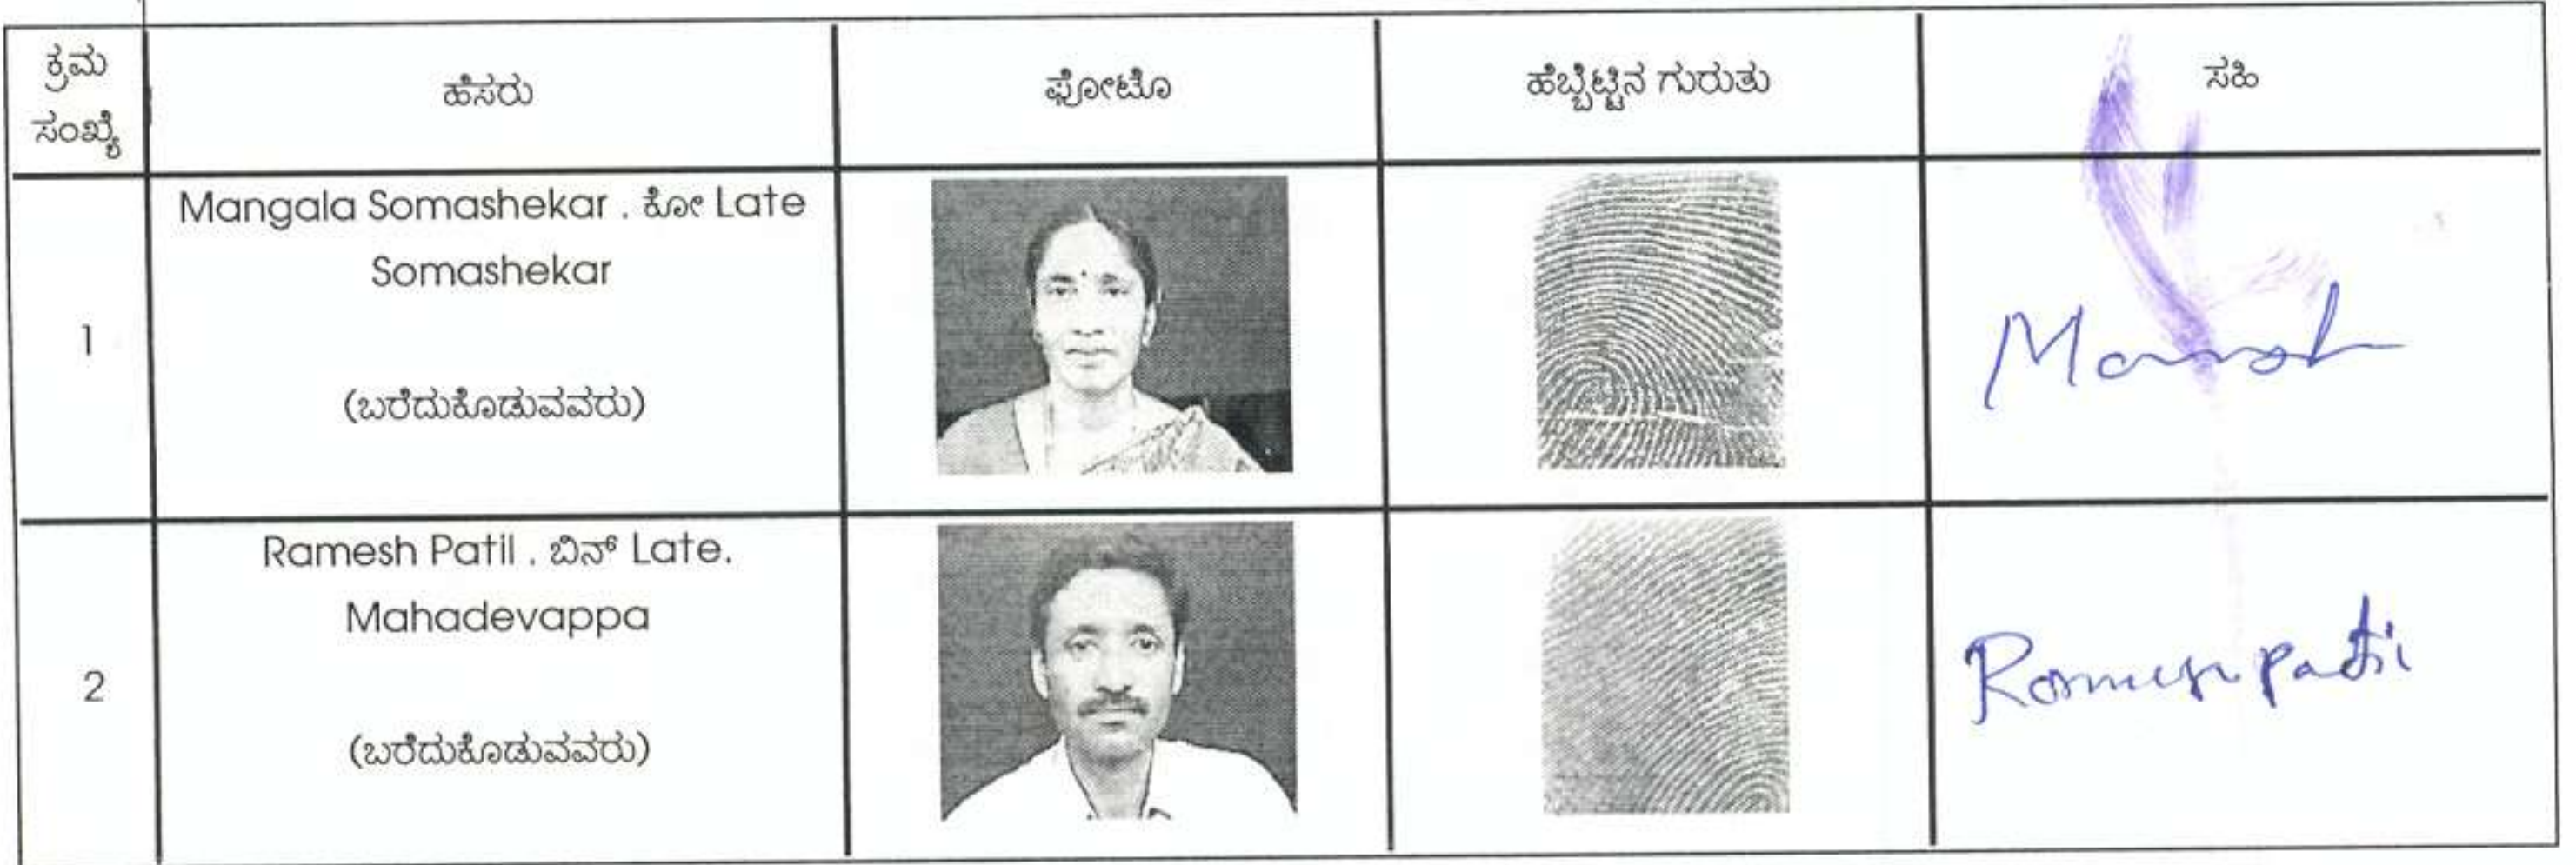 ಕ್ರಮ
ಸಂಖ್ಯೆ
ಹೆಸರು
ಫೋಟೊ
ಹೆಬ್ಬೆಟ್ಟಿನ ಗುರುತು
ಸಹಿ
1
Mangala Somashekar . ಕೋ Late
Somashekar
(ಬರೆದುಕೊಡುವವರು)
2
Ramesh Patil . ಬಿನ್ Late.
Mahadevappa
(ಬರೆದುಕೊಡುವವರು)
Ramesh Patil